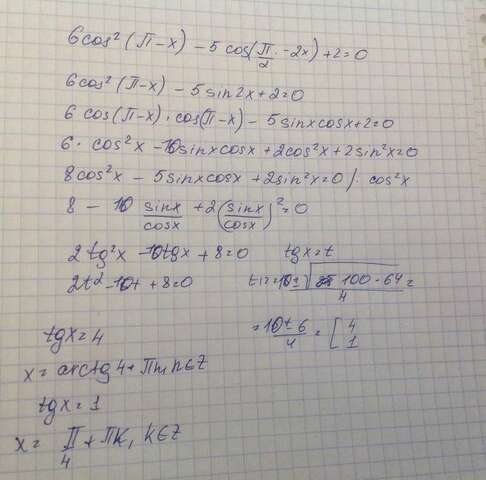 6cos²(П-x) - 5cos(П/2 - 2x) + 2 = 0
6cos²(П-x) - 5sin2x + 2 = 0
6 cos(П-x) · cos(П-x) - 5sinxcosx + 2 = 0
6 · cos²x - 10sinxcosx + 2cos²x + 2sin²x = 0
8cos²x - 5sinxcosx + 2sin²x = 0 /: cos²x
8 - 10 sinx/cosx + 2(sinx/cosx)² = 0
2tg²x - 10tgx + 8 = 0 tgx = t
2t² - 10t + 8 = 0 √100-64 =
4
= 10±6/4 = [4 1
tgx = 4
x = arctg4 + Пn, n∈Z
tgx = 1
x = П/4 + Пk, k∈Z